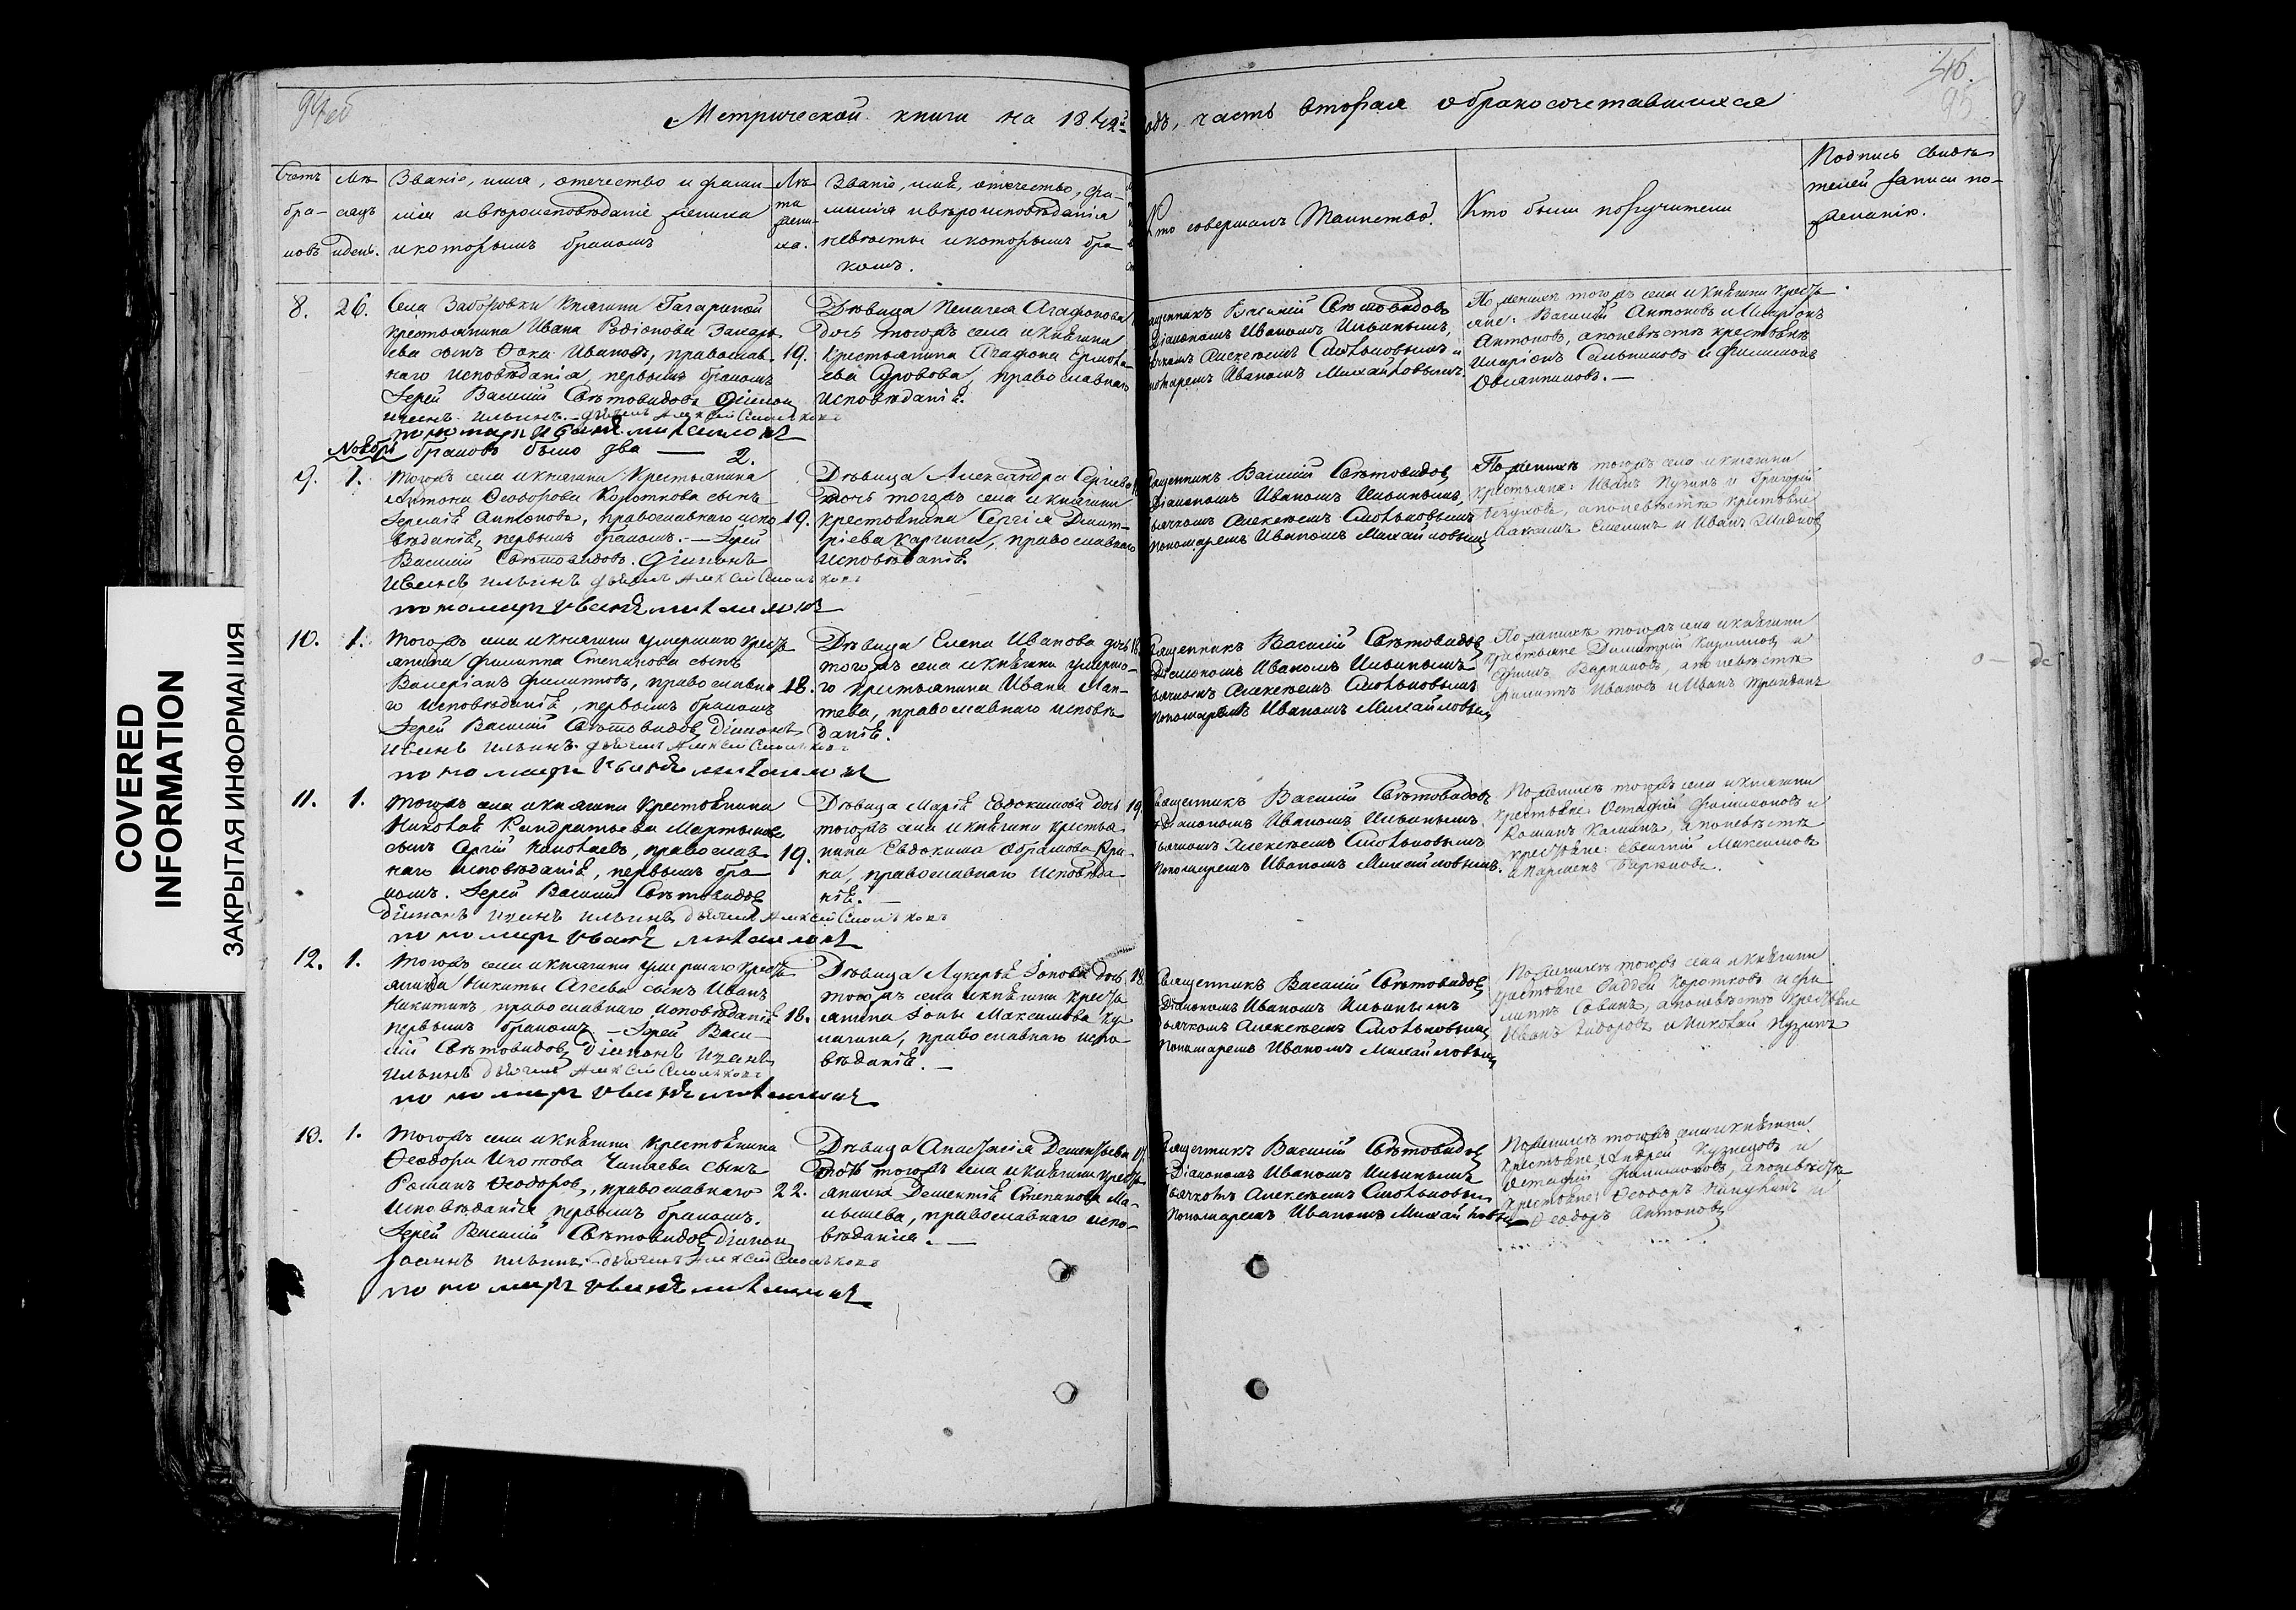 COVERED
INFORMATION
ЗАКРЫТАЯ ИНФОРМАЦИЯ
94об
46.
95
Метрической книги на 1842й
одъ, часть вторая о бракосочетавшихся
Счетъ бра-ковъ
Мѣсяцъ и день.
Званіе, имя, отечество и фами-
лія и вѣроисповѣданіе жениха
и которымъ бракомъ
Лѣта жени-ха.
Званіе, имя, отечество, фа-
милія и вѣроисповѣданія
невѣсты и которымъ бра-
комъ.
Кто совершалъ Таинство.
Кто были поручители
Подпись свидѣ-
телей записи по
желанію.
8. 26.
Села Заборовки Княгини Гагариной
крестьянина Ивана Родіонова Захарь-
ева сынъ Фока Ивановъ, православ-
наго исповѣданія, первымъ бракомъ
Іерей Василій Свѣтовидовъ Діаконъ
Иванъ Ильинъ. дьячекъ Алексѣй Смольковъ
пономарь Иванъ Михайловъ
19.
Дѣвица Пелагея Агафонова
дочь тогожъ села и княгини
крестьянина Агафона Ермола-
ева Суровова, православнаго
исповѣданія.
Священникъ Василій Свѣтовидовъ
Діакономъ Иваномъ Ильинымъ,
дьячкомъ Алексѣемъ Смольковымъ и
пономаремъ Иваномъ Михайловымъ.
По женихѣ тогожъ села и княгини кресть
яне: Василій Антоновъ и Иларіонъ
Антоновъ, а по невѣстѣ крестьяне
Иларіонъ Сальниковъ и Филимонъ
Овчинниковъ.—
Ноябрь браковъ было два — 2.
9. 1.
Тогожъ села и княгини Крестьянина
Антона Ѳеодорова Короткова сынъ
Іеремій Антоновъ, православнаго испо
вѣданія, первымъ бракомъ.— Іерей
Василій Свѣтовидовъ. Діаконъ
Иванъ Ильинъ дьячекъ Алексѣй Смольковъ
пономарь Иванъ Михайловъ
19.
Дѣвица Александра Сергіева
дочь тогожъ села и княгини
крестьянина Сергія Дмит-
ріева Каргина, православнаго
исповѣданія.
Священникъ Василій Свѣтовидовъ
Діакономъ Иваномъ Ильинымъ,
дьячкомъ Алексѣемъ Смольковымъ
Пономаремъ Иваномъ Михайловымъ
По женихѣ тогожъ села и княгини
крестьяне: Иванъ Кузинъ и Григорій
а по невѣстѣ крестьяне
и Иванъ
10. 1.
Тогожъ села и княгини умершаго крестья
янина Филиппа Степанова сынъ
Валеріанъ Филиповъ, православна
го исповѣданія, первымъ бракомъ
Іерей Василій Свѣтовидовъ Діаконъ
Иванъ Ильинъ. дьячекъ Алексѣй Смольковъ
пономарь Иванъ Михайловъ
18.
Дѣвица Елена Иванова дочь 18.
тогожъ села и княгини умерша-
го крестьянина Ивана Лап-
тева, православнаго исповѣ
данія.
Священникъ Василій Свѣтовидовъ
Діакономъ Иваномъ Ильинымъ
дьячкомъ Алексѣемъ Смольковымъ
Пономаремъ Иваномъ Михайловымъ
По женихѣ тогожъ села и княгини
крестьяне Димитрій и
а по невѣстѣ
Филиппъ Ивановъ и Иванъ
11. 1.
Тогожъ села и княгини крестьянина
Николая Кандратьева Мартынова
сынъ Сергій Николаевъ, православ-
наго исповѣданія, первымъ бра
комъ. Іерей Василій Свѣтовидовъ
Діаконъ Иванъ Ильинъ дьячекъ Алексѣй Смольковъ
пономарь Иванъ Михайловъ
19.
Дѣвица Марія Евдокимова дочь 19.
тогожъ села и княгини крестья
нина Евдокима Абрамова
православнаго исповѣда
нія. —
Священникъ Василій Свѣтовидовъ
Діакономъ Иваномъ Ильинымъ
дьячкомъ Алексѣемъ Смольковымъ
Пономаремъ Иваномъ Михайловымъ.
По женихѣ тогожъ села и княгини
крестьяне: Остафій Филимоновъ и
а по невѣстѣ
крестьяне: Евгеній Максимовъ
12. 1.
Тогожъ села и княгини умершаго кресть
янина Никиты Агеева сынъ Иванъ
Никитинъ, православнаго исповѣданія
первымъ бракомъ.— Іерей Васи-
лій Свѣтовидовъ, Діаконъ Иванъ
Ильинъ дьячекъ Алексѣй Смольковъ
пономарь Иванъ Михайловъ
18.
Дѣвица Лукерья Іонова дочь 18.
тогожъ села и княгини кресть
янина Іоны Максимова Ку
лагина, православнаго испо
вѣданія.—
Священникъ Василій Свѣтовидовъ
Діакономъ Иваномъ Ильинымъ
дьячкомъ Алексѣемъ Смольковымъ
Пономаремъ Иваномъ Михайловымъ
По женихѣ тогожъ села и княгини
крестьяне Фаддей Коротковъ и Фи
липпъ Савинъ, а по невѣстѣ крестьяне
Иванъ Сидоровъ и Николай Кузинъ
13. 1.
Тогожъ села и княгини крестьянина
Ѳеодора Изотова Чапаева сынъ
Романъ Ѳеодоровъ, православнаго
исповѣданія, первымъ бракомъ.
Іерей Василій Свѣтовидовъ Діаконъ
Іоаннъ Ильинъ. дьячекъ Алексѣй Смольковъ
пономарь Иванъ Михайловъ
22.
Дѣвица Анастасія Дементьева
дочь тогожъ села и княгини кресть-
янина Дементія Степанова Ма-
лышева, православнаго испо-
вѣданія.—
Священникъ Василій Свѣтовидовъ
Діакономъ Иваномъ Ильинымъ
дьячкомъ Алексѣемъ Смольковымъ
Пономаремъ Иваномъ Михайловымъ
По женихѣ тогожъ села и княгини
крестьяне: Андрей Кузнецовъ и
Остафій Филимоновъ, а по невѣстѣ
крестьяне: Ѳеодоръ и
Ѳеодоръ Антоновъ